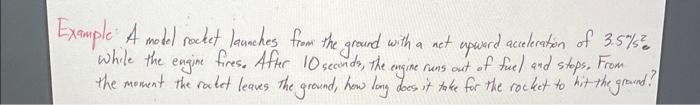 Example: A model rocket launches from the ground with a net upward acceleration of 3.5 m/s².
while the engine fires. After 10 seconds, the engine runs out of fuel and stops. From
the moment the rocket leaves the ground, how long does it take for the rocket to hit the ground?